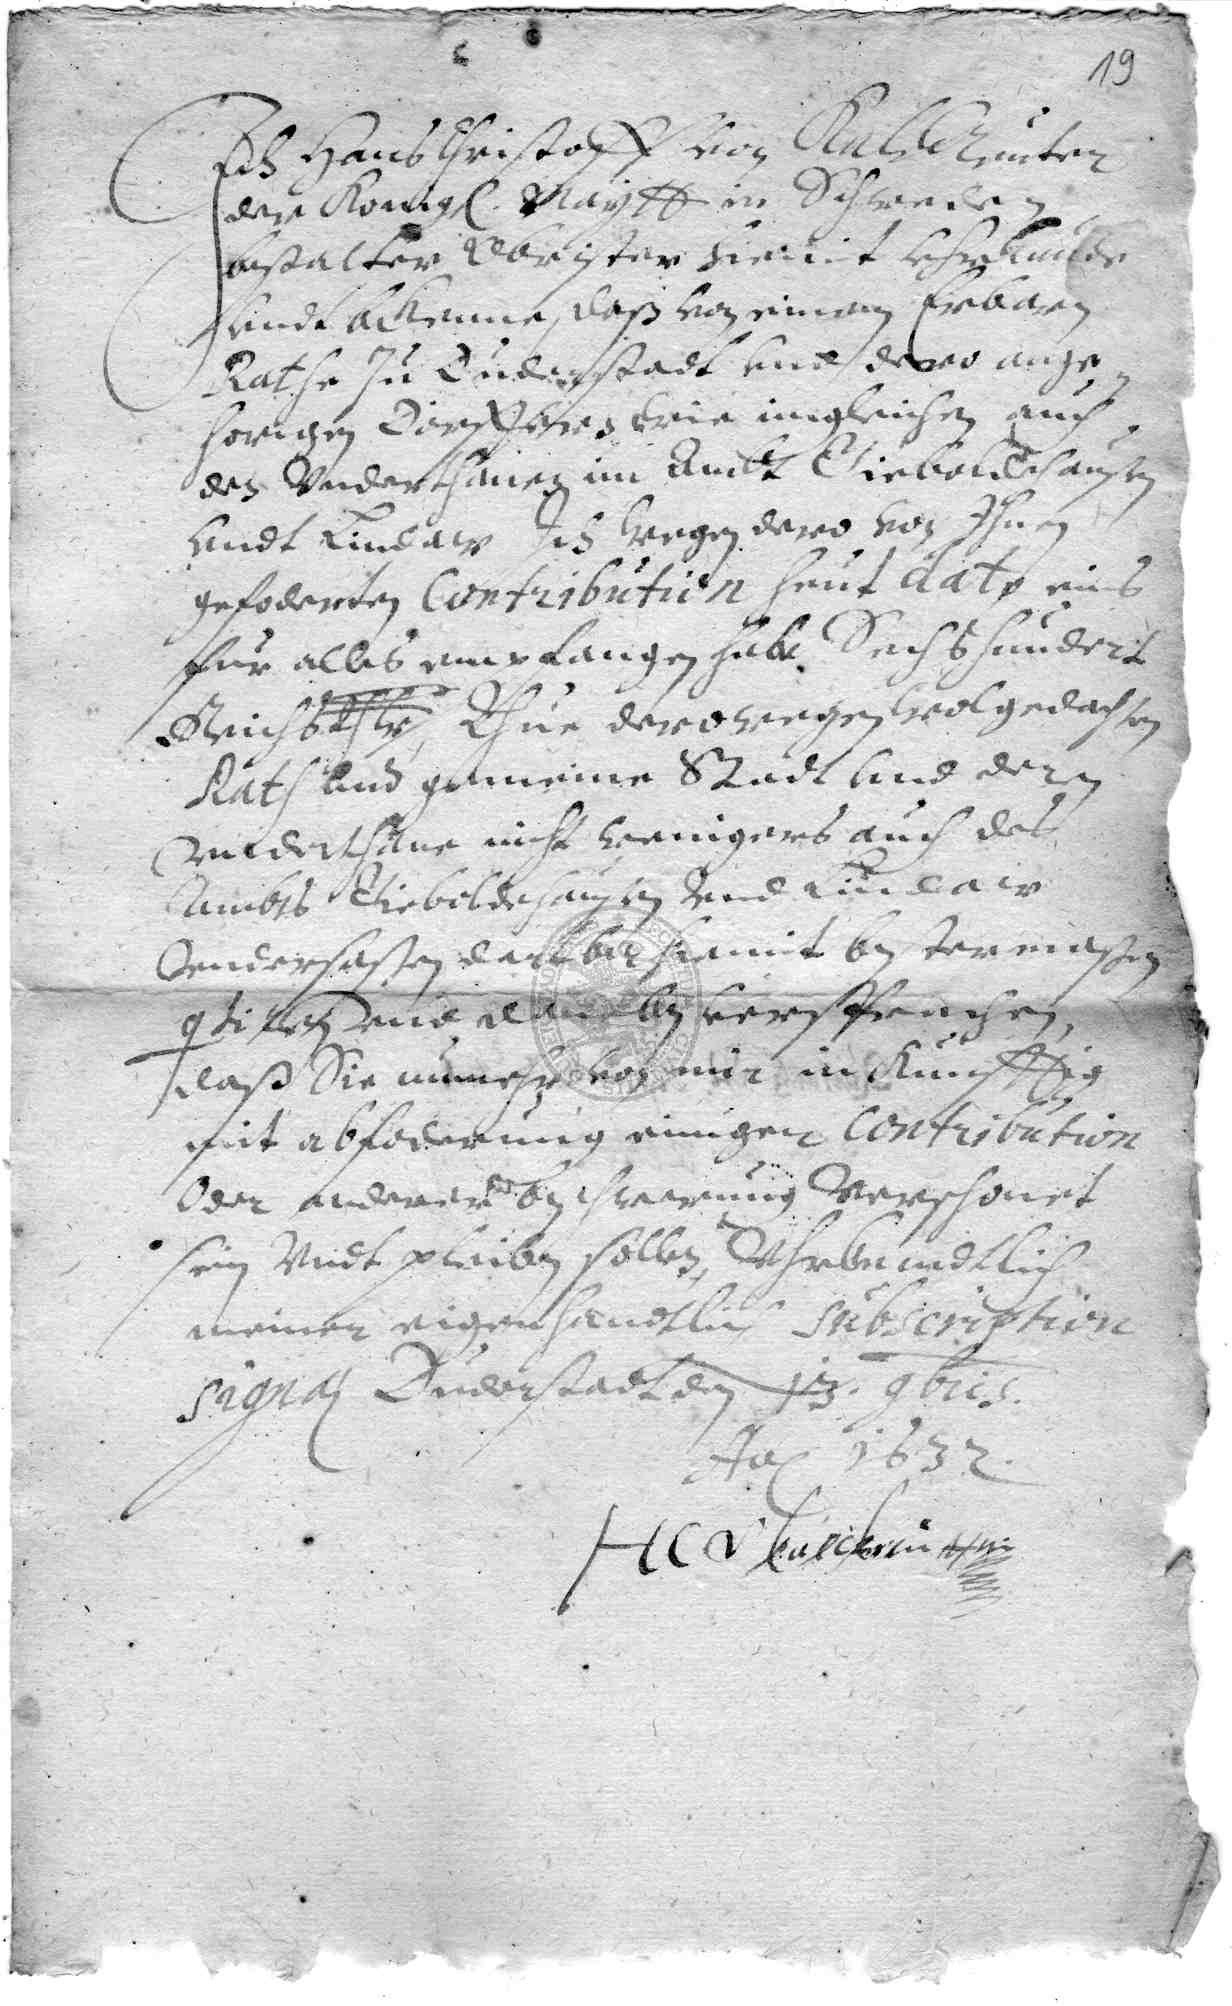 19
Ich Hans Christoff von Kalckreuter
der Königl. Maytt in Schweden
bestalter Obrister hiemit uhrkunde
undt bekenne, daß von einem Erbarn
Rathe zu Duderstadt und dero ange-
horigen Dorffern wie imgleichen auch
den Underthanen im Ambt Gieboldehausen
undt Lindaw Ich wegen dero von Ihnen
gefoderten Contribution heut dato eins
für alles empfangen habe Sechshundert
Reichsthlr, Thue derowegen wolgedachten
Rath und gemeine Stadt und deren
Underthane nicht wenigers auch des
Ambts Gieboldehausen und Lindaw
Undersaßen darüber hiemit bester maßen
quitiren und daneben versprechen,
daß Sie nunmehr von mir in Kunfftig
mit abfoderung einiger Contribution
Oder anderer beschwerung Verschonet
sein Undt pleiben sollen, Uhrkundtlich
meiner eigenhandtlich Subscription
Signat Duderstadt den 13. 9bris.
Ao 1632.
H C V Kalckreutter